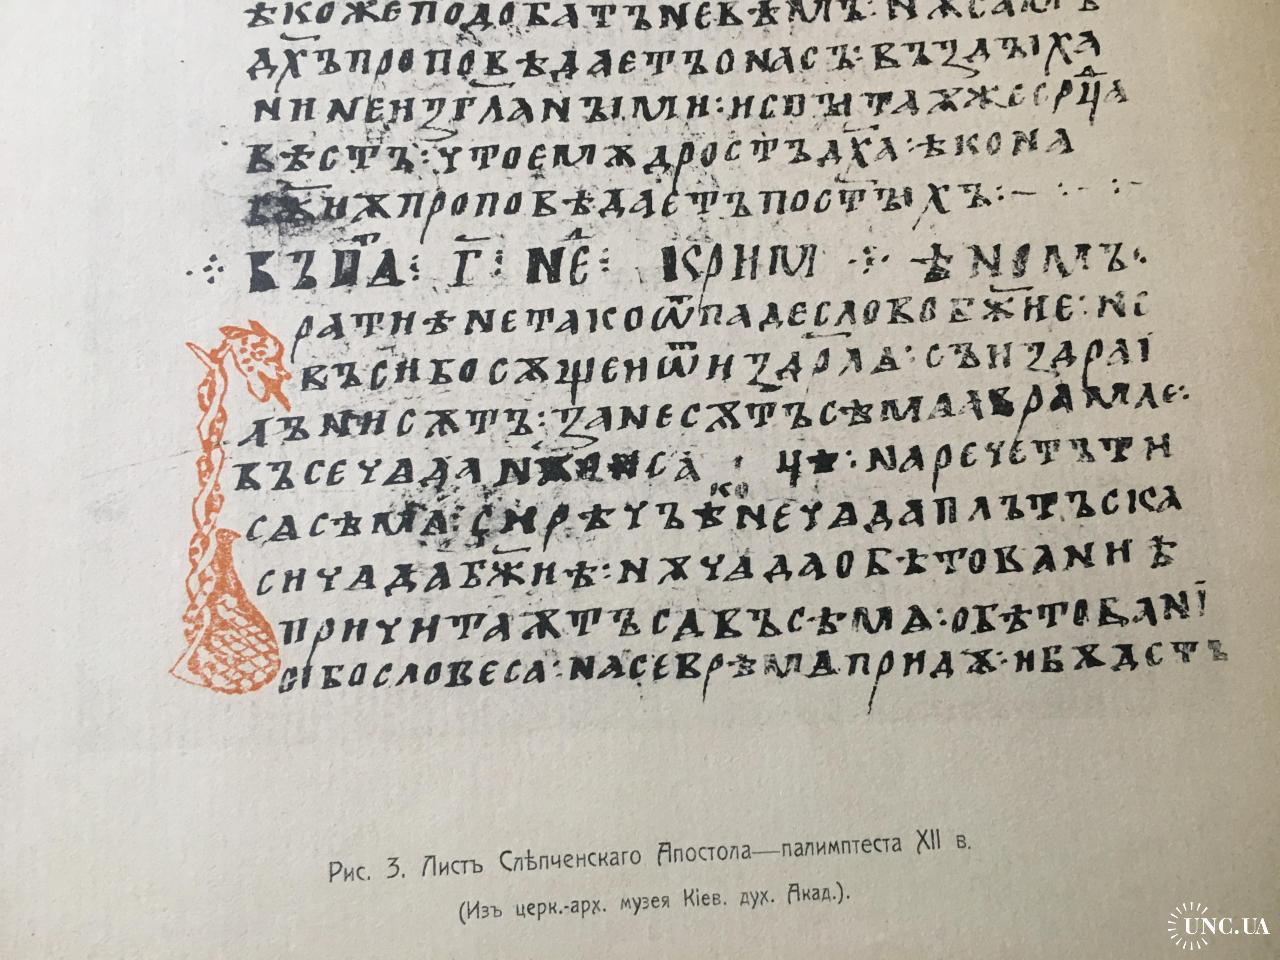 ѣкожеподобатъневѣмъ: нѫсамъ
дх҃ъпроповѣдаетъонасъ: въздꙑха
нинеизгланꙑми: испꙑтаѫжесрц҃а
вѣстъ: чтоемѫдростъдх҃а: ѣкона
бж҃иѫпроповѣдаетъпостꙑхъ:
въпⷮа: г҃: неⷣ: крим ⁘ ѣномъ
ратиѣнетакоѿпадесловобж҃ие: не
въсибосѫщеиѿиздрл҃ѣ: сииздраі
лъмисѫтъ: занесѫтъсѣмаавраамле:
въсечада исаац : наречетъти
сасѣма: сирѣчъѣконечадаплътъска
сичадабж҃иѣ: нѫчадаобѣтованиѣ
причитаѫтъсавъсѣма: обѣтовані
оібословеса: насеврѣмапридѫ: ибѫдетъ
Рис. 3. Листъ Слѣпченскаго Апостола—палимптеста XII в.
(Изъ церк.-арх. музея Кіев. дух. Акад.).
UNC.UA